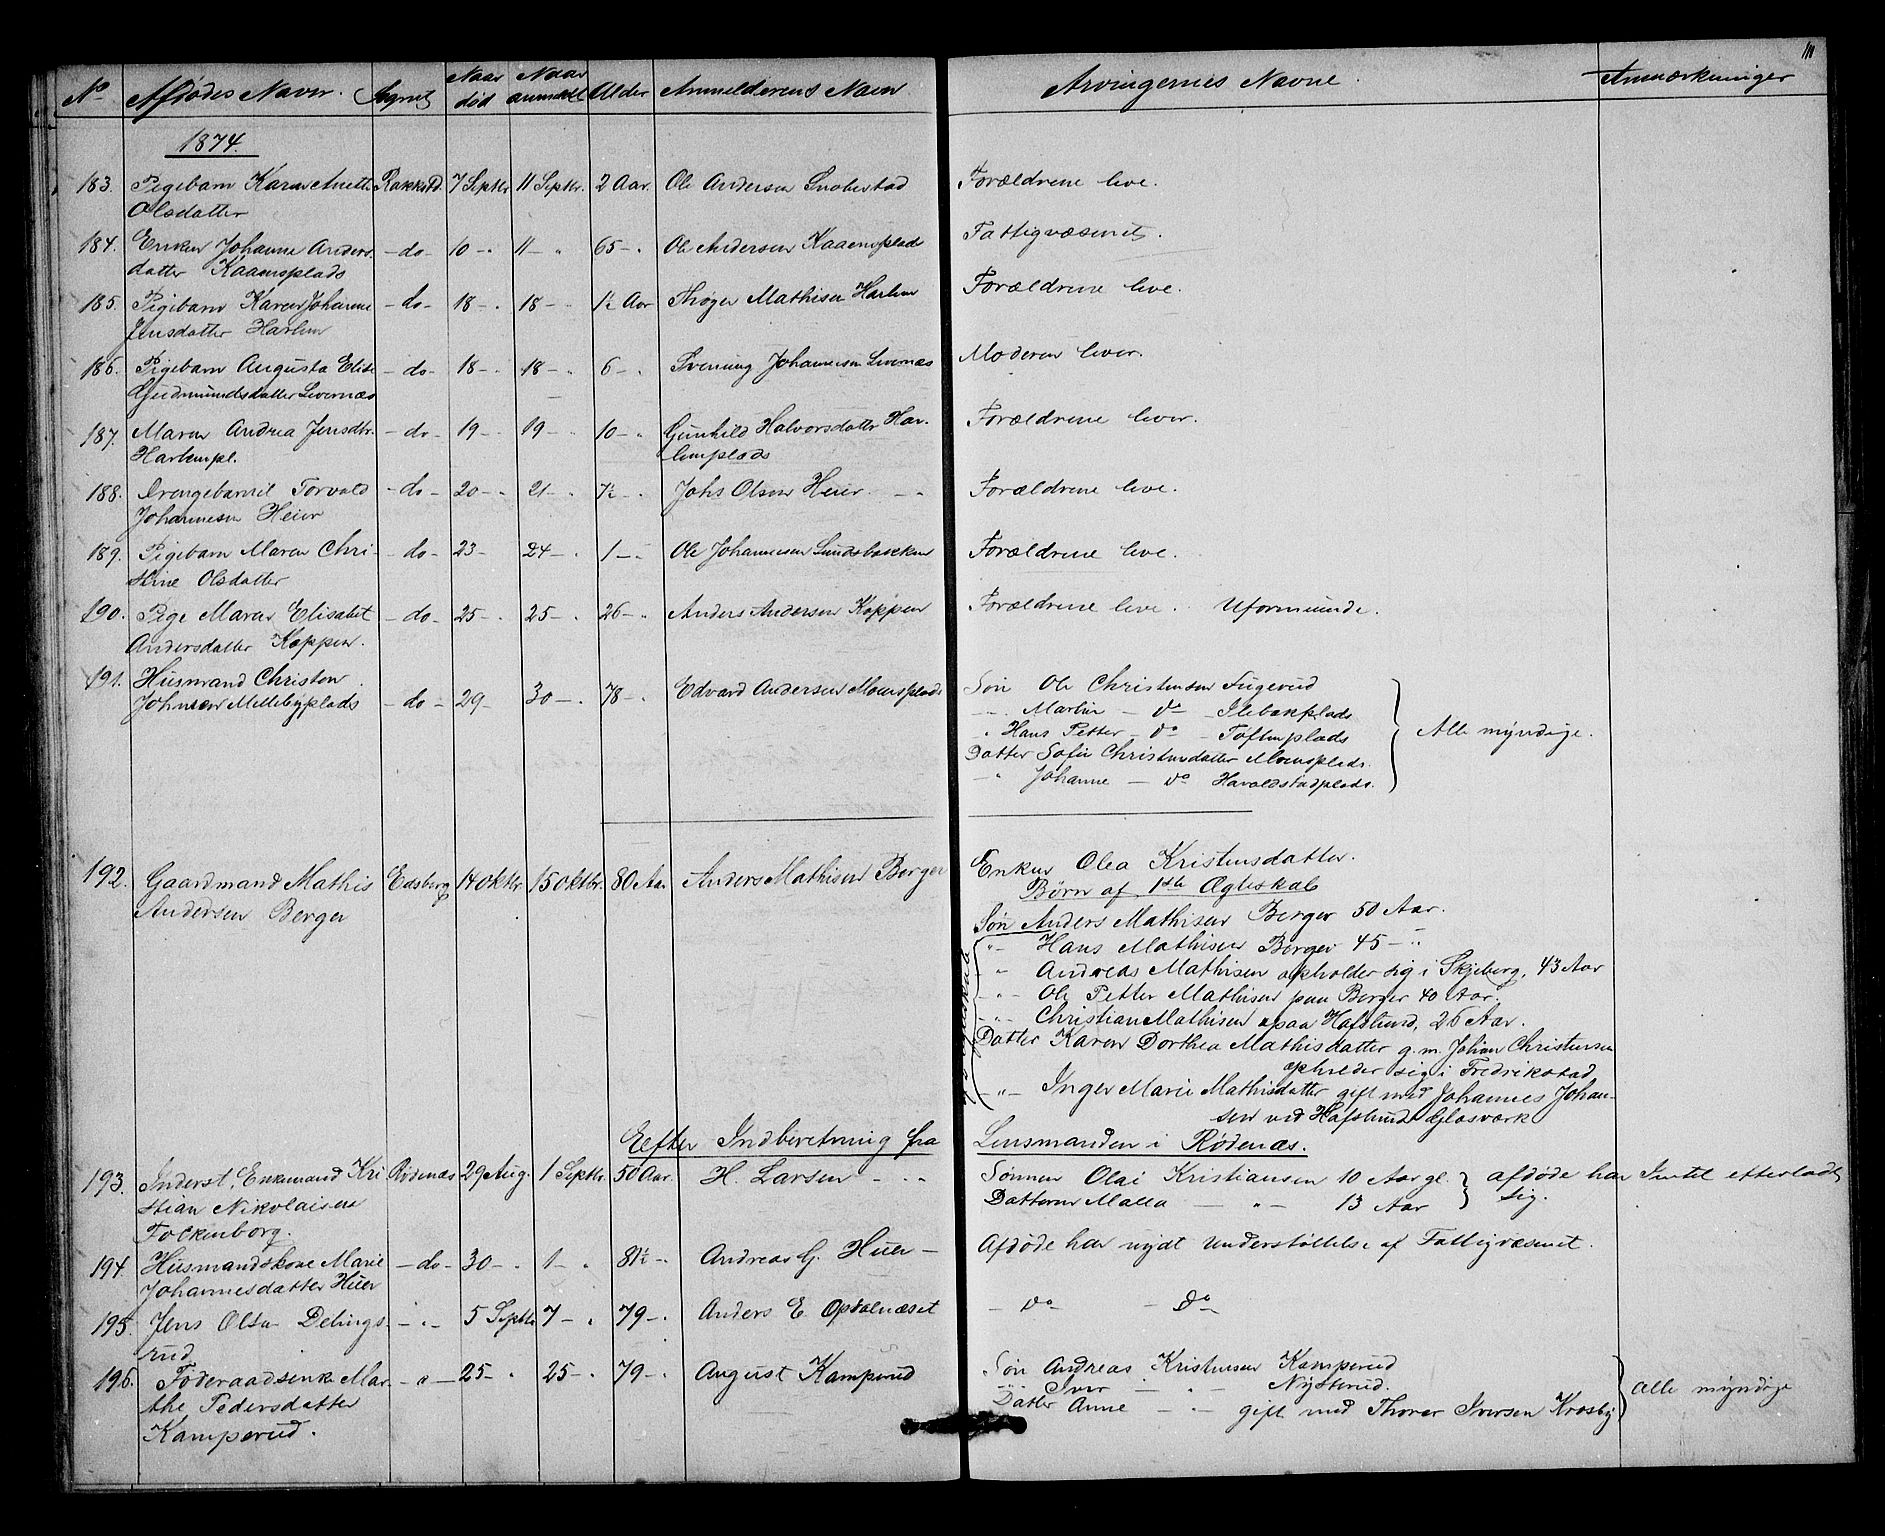 111
No Afdødes Navn. Sognet Naar død Naar anmeldt Alder Anmelderens Navn Arvingernes Navne. Anmærkninger
1874.
183. Pigebarn Karen Anette Rakkestd. 7 Septbr 11 Septbr. 2 Aar. Ole Andersen Forældrene leve.
Olsdatter
184. Enken Johanne Anders- - do - 10 - " 11 - " 65 - " Ole Andersen Kaaensplads Fattigvæsenet.
datter Kaaensplads
185. Pigebarn Karen Johanne - do - 18 - " 18 - " 1½ Aar Thøger Mathisen Harlem Forældrene leve.
Jensdatter Harlem
186. Pigebarn Augusta Elise - do - 18 - " 18 - " 6 - " Svening Johannesen Levernæs Moderen lever.
Gudmundsdatter Levernæs
187. Maren Andrea Jensdtr. - do - 19 - 19 - " 10 - " Gunhild Halvorsdatter Har- Forældrene lever.
Harlempl. lemplads
188. Drengebarnet Torvald - do - 20 - " 21 - " 7½ - " Johs Olsen Heier. - " Forældrene leve.
Johannesen Heier
189. Pigebarn Maren Chri- - do - 23 - 24 - " 1 - " Ole Johannesen Lundsbakken Forældrene leve.
stine Olsdatter
190. Pige Maren Elisabet - do - 25 - " 25 - " 26 - " Anders Andersen Koppen Forældrene leve. Uformuende.
Andersdatter Koppen.
191. Husmand Christen Søn Ole Christensen Fugerud
Johnsen Mellebyplads - do - 29 - 30 - " 78 - " Edvard Andersen Moensplads
- " - Martin - do - Ilebækplads
" Hans Petter - do - Toftenplads Alle myndige.
Datter Sofie Christensdatter Moensplads.
- " Johanne - do Haraldstadplads.
192. Gaardmand Mathis Edsberg 14 Oktbr. 15 Oktbr. 80 Aar. Anders Mathisen Berger Enken Olea Kristensdatter.
Andersen Berger Børn af 1ste Ægteskab
Søn Anders Mathisen Berger 50 Aar.
" - Hans Mathisen Berger 45 - "
" Andreas Mathisen opholder sig i Skjeberg, 43 Aar
- " - Ole Petter Mathisen paa Berger 40 Aar.
- " - Christian Mathisen opaa Hafslund, 26 Aar.
Datter Karen Dorthea Mathisdatter g. m. Johan Christensen
opholder sig i Fredrikstad
- " - Inger Marie Mathisdatter gift med Johannes Johan-
sen ved Hafslund Glasværk
Efter Indberetning fra Lensmanden i Rødenæs.
193. Inderst, Enkemand Kri Rødenæs 29 Aug. 1 Septbr. 50 Aar. H. Larsen - " - Sønnen Olai Kristiansen 10 Aar gl. afdøde har Intet efterladt
stian Nikolaisen Datteren Malla - " - 13 Aar sig.
Fockenborg.
194. Husmandskone Marie - do - 30 - " 1 - " 81½ - " Andreas G. Huer - Afdøde har nydt Understøttelse af Fattigvæsenet.
Johannesdatter Huer
195. Jens Olsen Delings- - " - 5 Septbr 7 - " 79 - " Anders E. Opdalnæset - do - - do -
rud
196. Føderaadsenke Mar- - " - 25 - " 25 - " 79 - " August Kamperud Søn Andreas Kristensen Kamperud
the Pedersdatter - " Iver - " - Nysterud.
Kamperud. Datter Anne - " - gift med Thorer Iversen Krosby Alle myndige